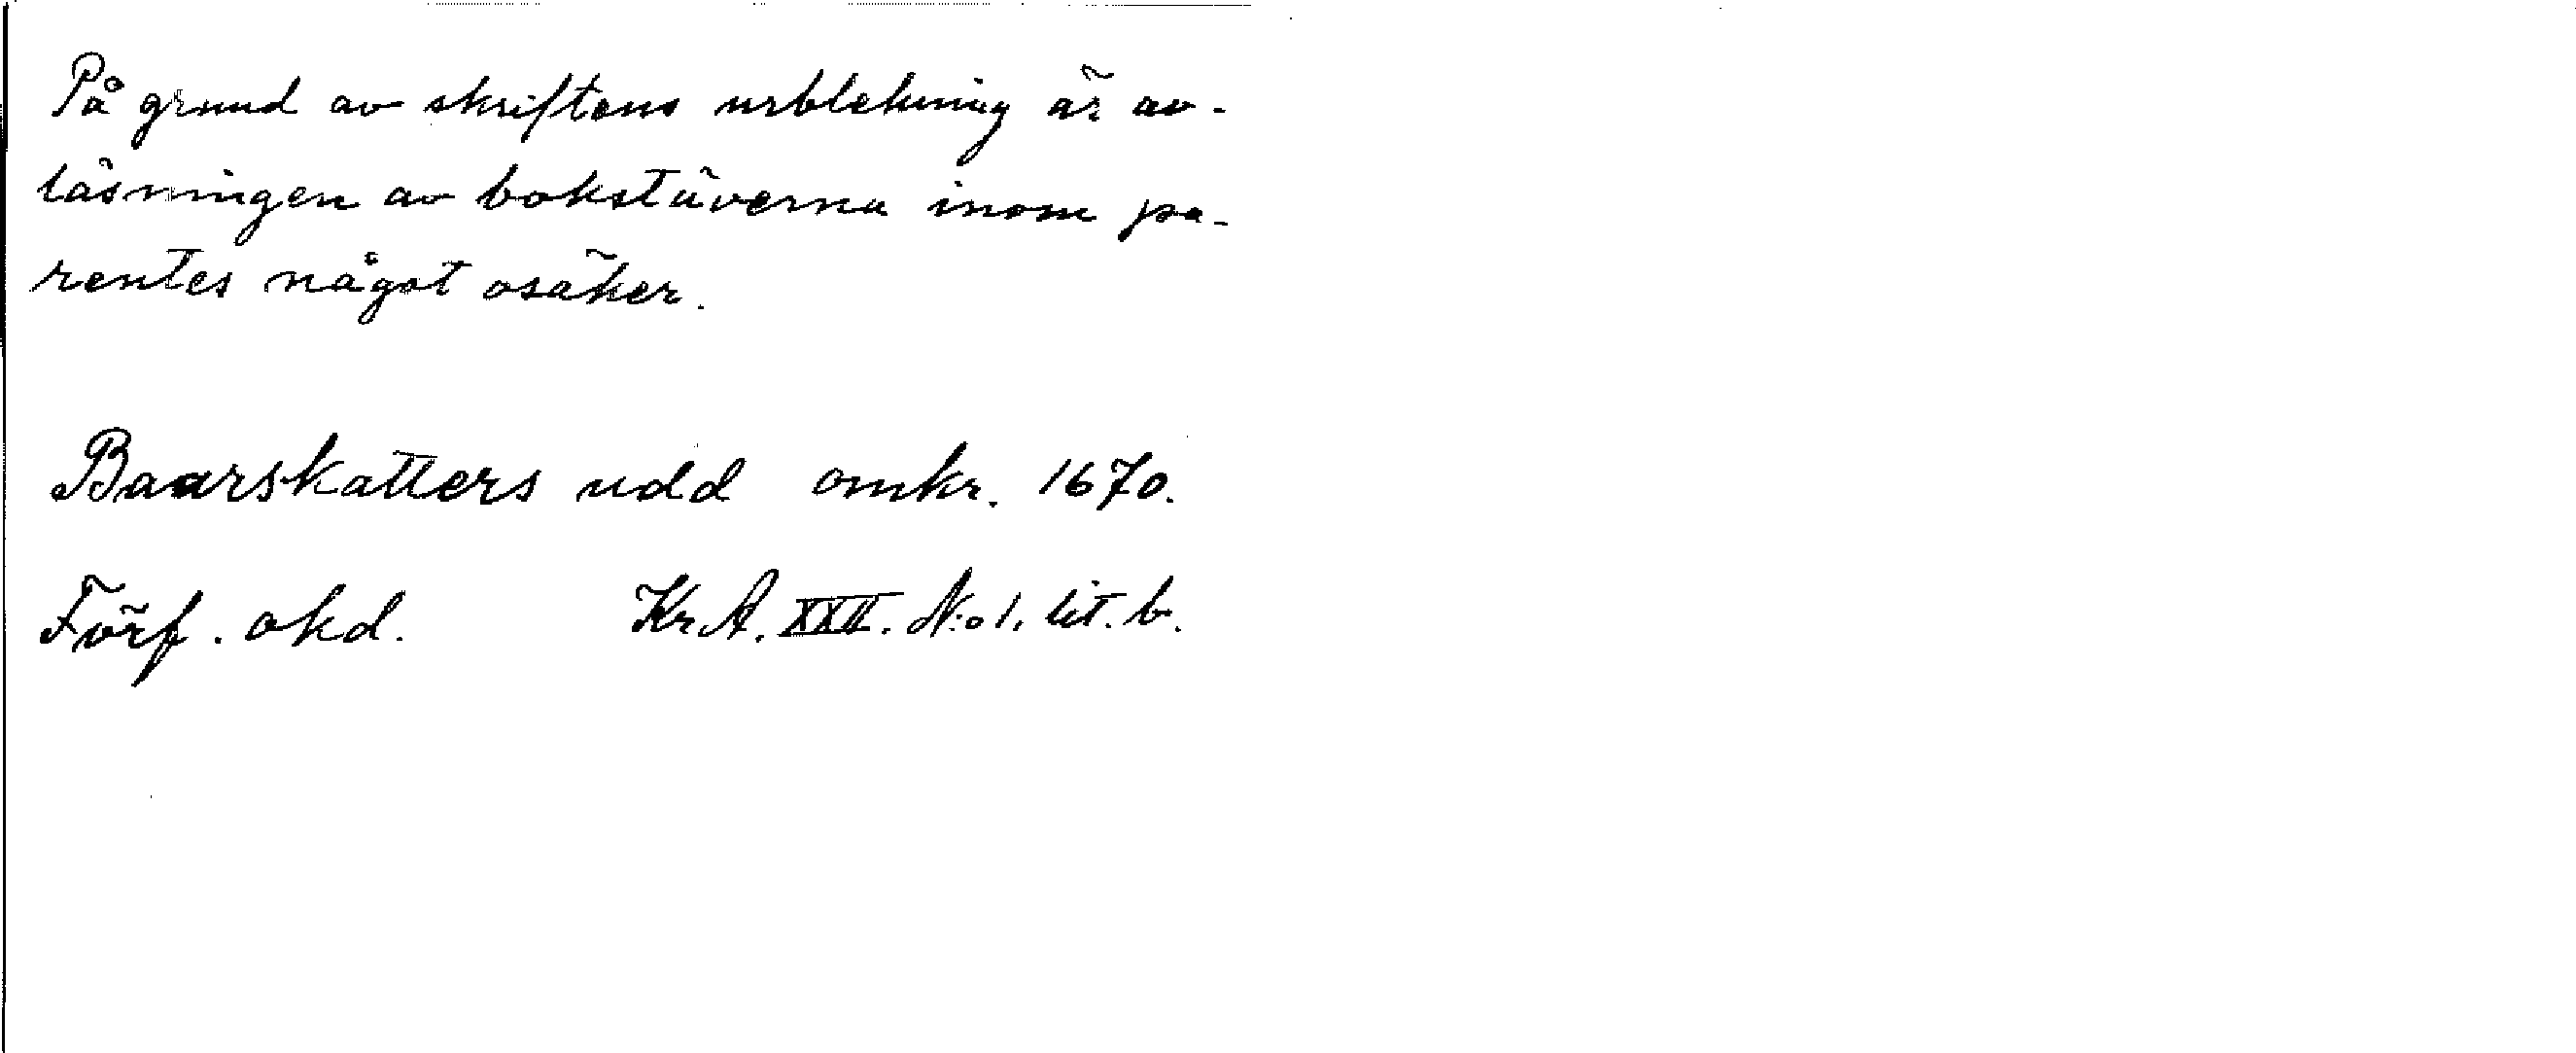 På grund av skriftens urblekning är av-
läsningen av bokstäverna inom pa-
rentes något osäker.
Baarskatters udd omkr. 1670.
Förf. okd. Kr A. XXII. N:o 1. lit. b.